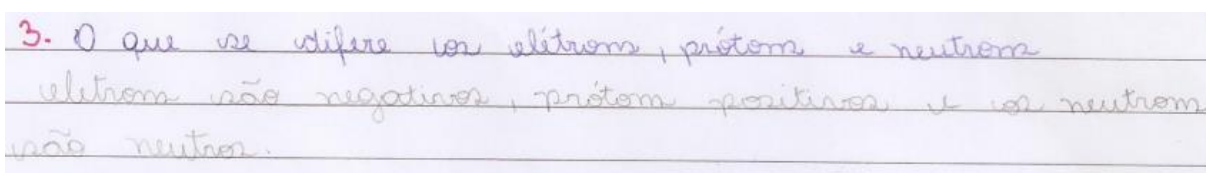 3. O que se difere os elétrons, prótons e neutrons
eletrons são negativos, prótons positivos e os neutrons
são neutros.